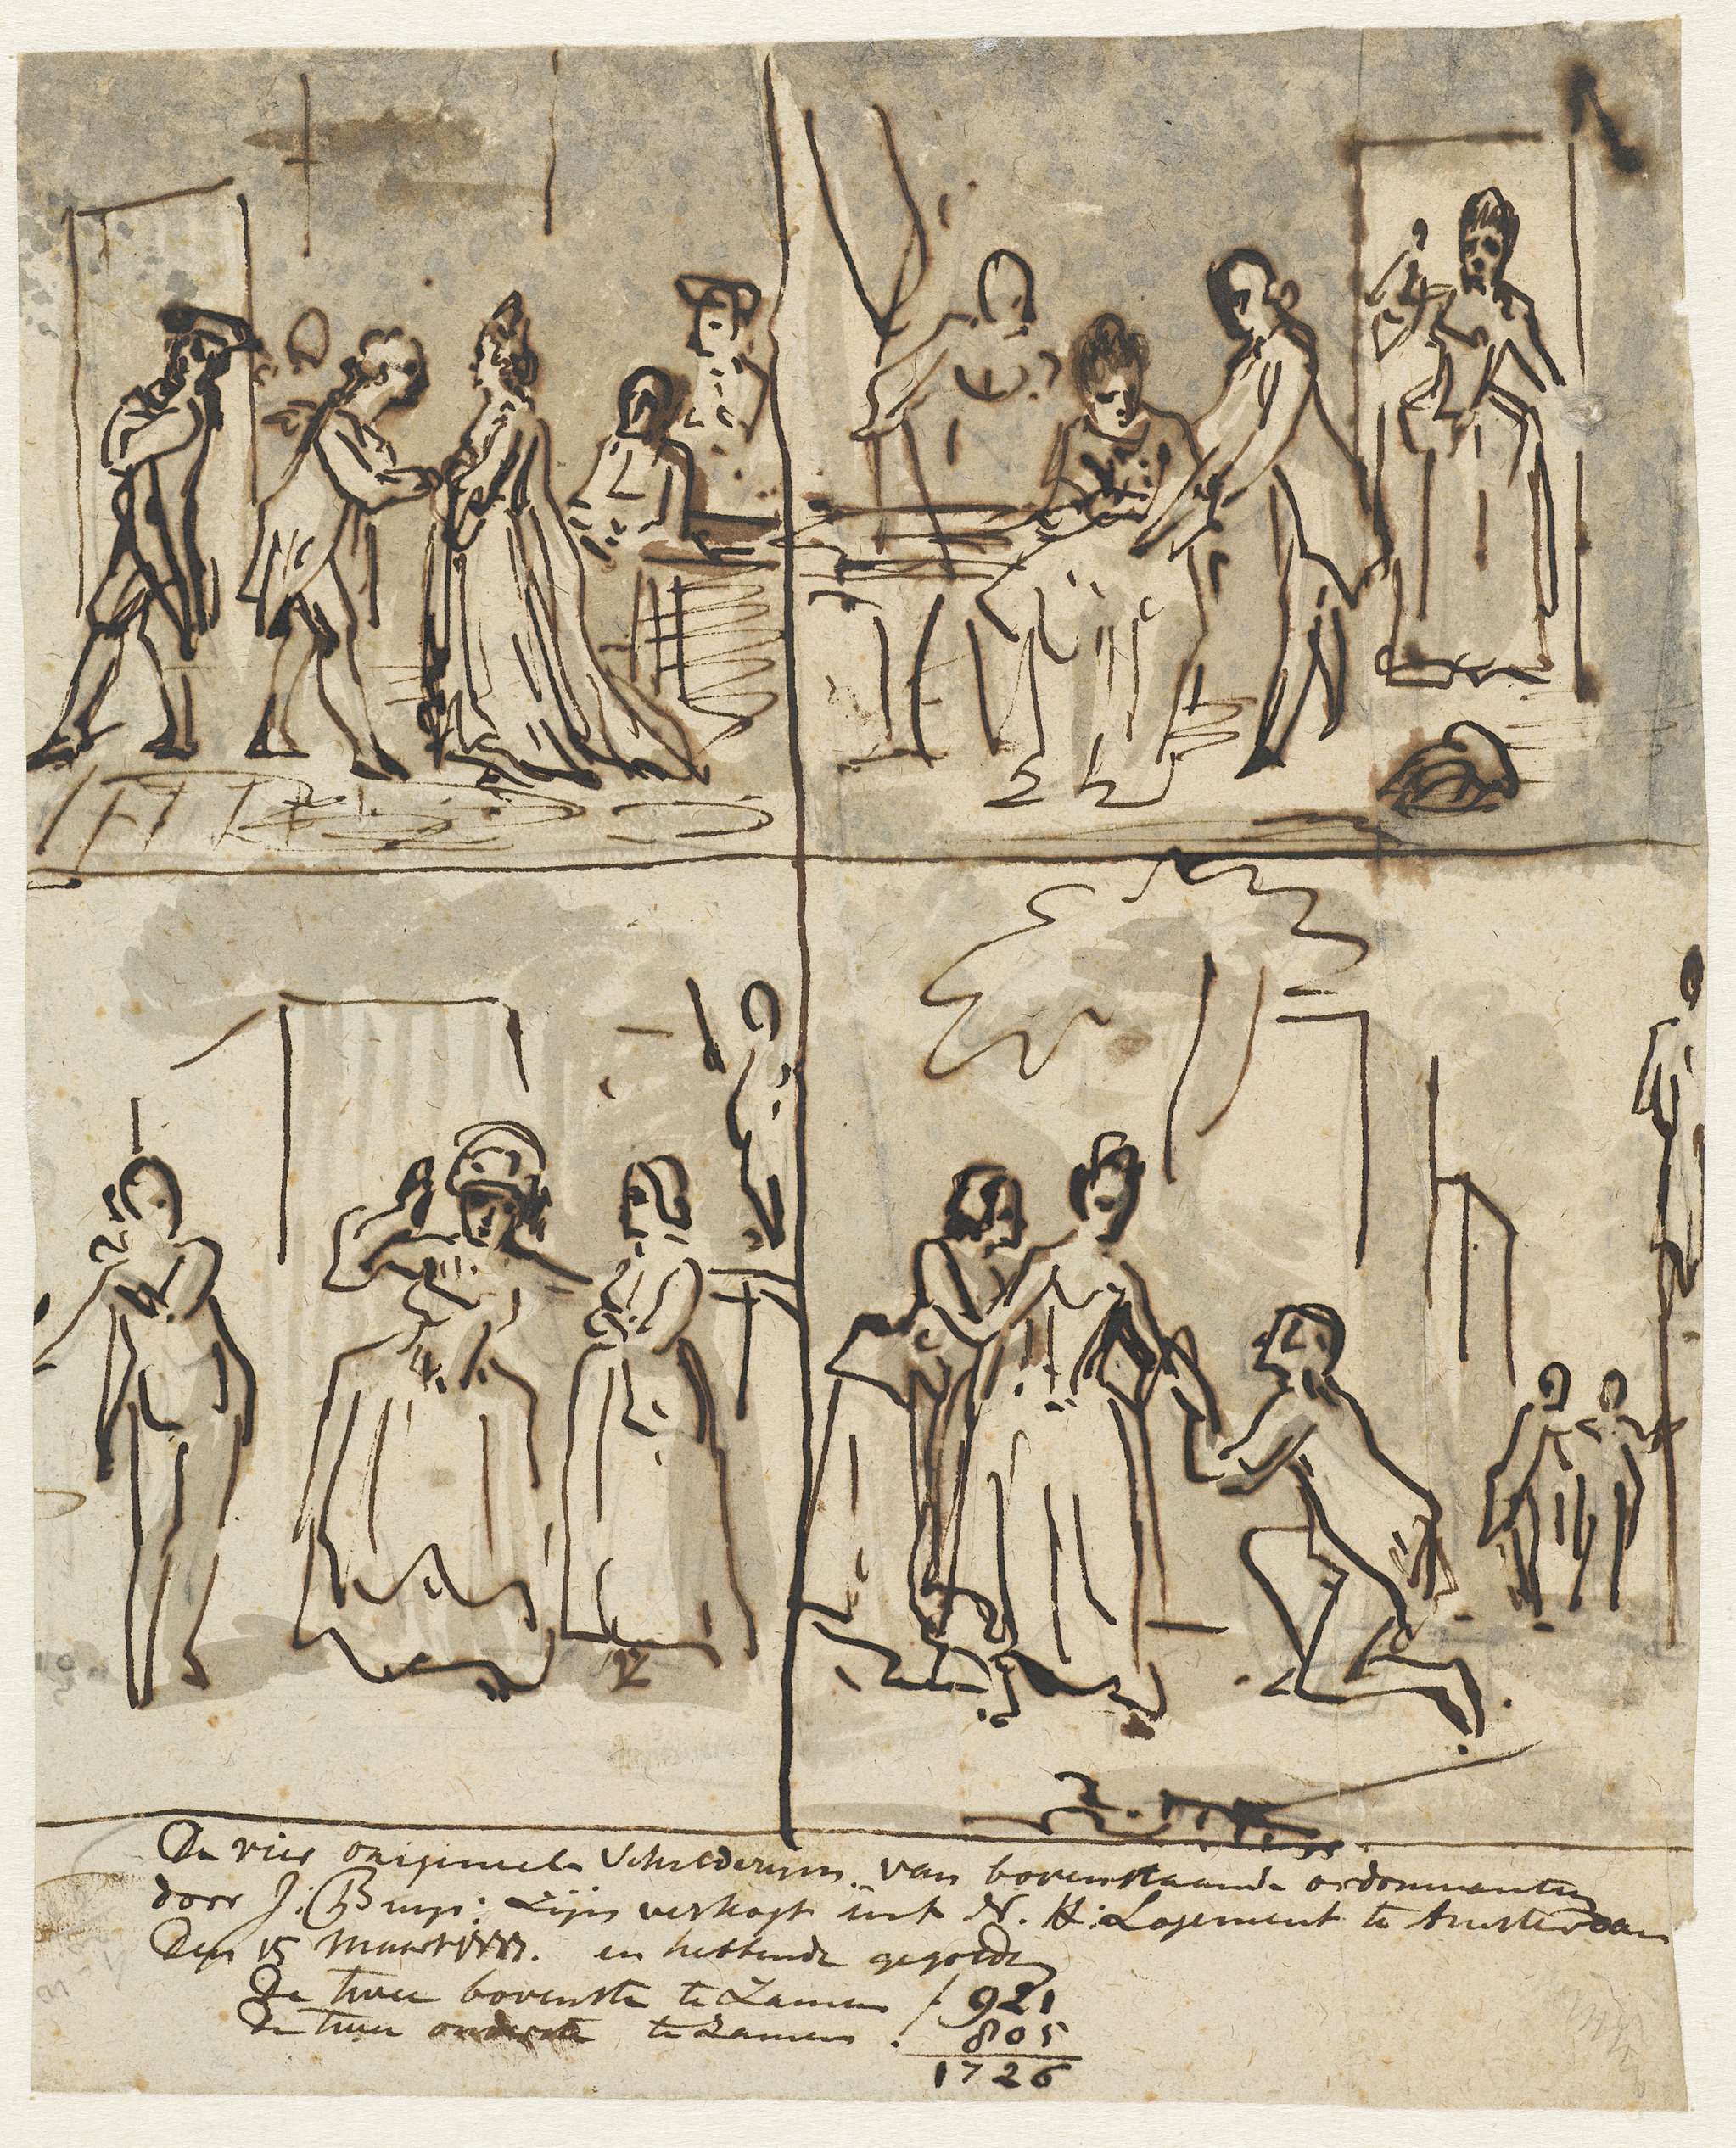 De vier origineele Schilderijen van bovenstaande ordonnantien
door J. Buys. Zijn verkogt in't N. H. Logement te Amsterdam
Den 15 Maart en hebbende gegolden
De twee bovenste te Zamen f 921
De twee onderste te Zamen . f 805
1726